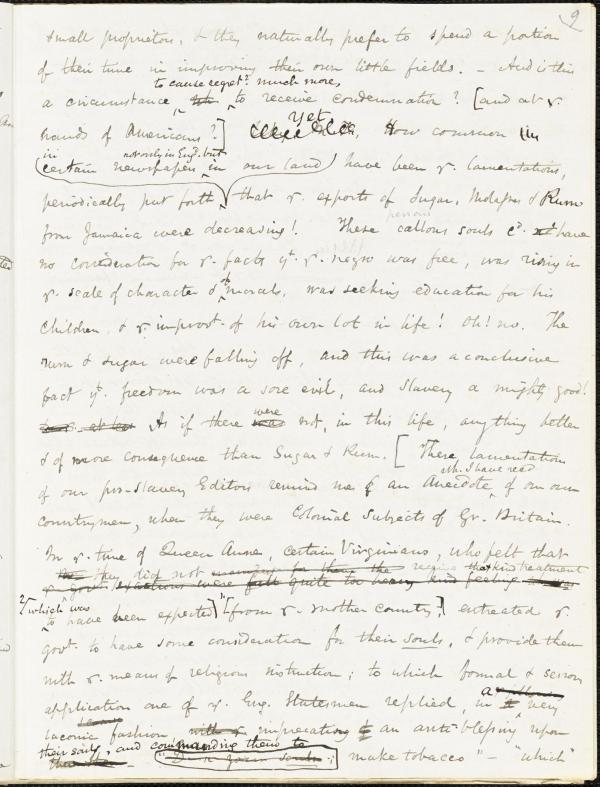 9
small proprietors, & they naturally prefer to spend a portion
of their time in improving their own little fields. – And is this
to cause regret? much more,
a circumstance to receive condemnation? [and at ye
hands of Americans?] Yet How common
in not only in Eng. but
certain newspapers in our land have been ye lamentations,
periodically put forth, that ye exports of Sugar, Molasses & Rum
persons
from Jamaica were decreasing! These callous souls cd. have
no consideration for ye facts yt. ye negro was free, was rising in
ye scale of character & morals, was seeking education for his
children, & ye improvt. of his own lot in life! Oh! no. The
rum & sugar were falling off, and this was a conclusive
fact yt. freedom was a sore evil, and slavery a mighty good!
were
As if there was not, in this life, anything better
& of more consequence than Sugar & Rum. [These lamentations
wh. I have read
of our pro-slavery Editors remind me of an Anecdote, of our own
countrymen, when they were Colonial Subjects of Gr. Britain.
In ye time of Queen Anne, certain Virginians, who felt that
they did not that kind treatment
ye govt. exactions were felt quite too heavy kind feeling
which was
to have been expected] [from ye mother country,] entreated ye
govt. to have some consideration for their souls, & provide them
with ye means of religious instruction; to which formal & serious
application one of ye Eng. Statesmen replied, in a very
laconic fashion imprecating an anti-blessing upon
their souls, and commanding them to
"D—n your souls; make tobacco" – "which"